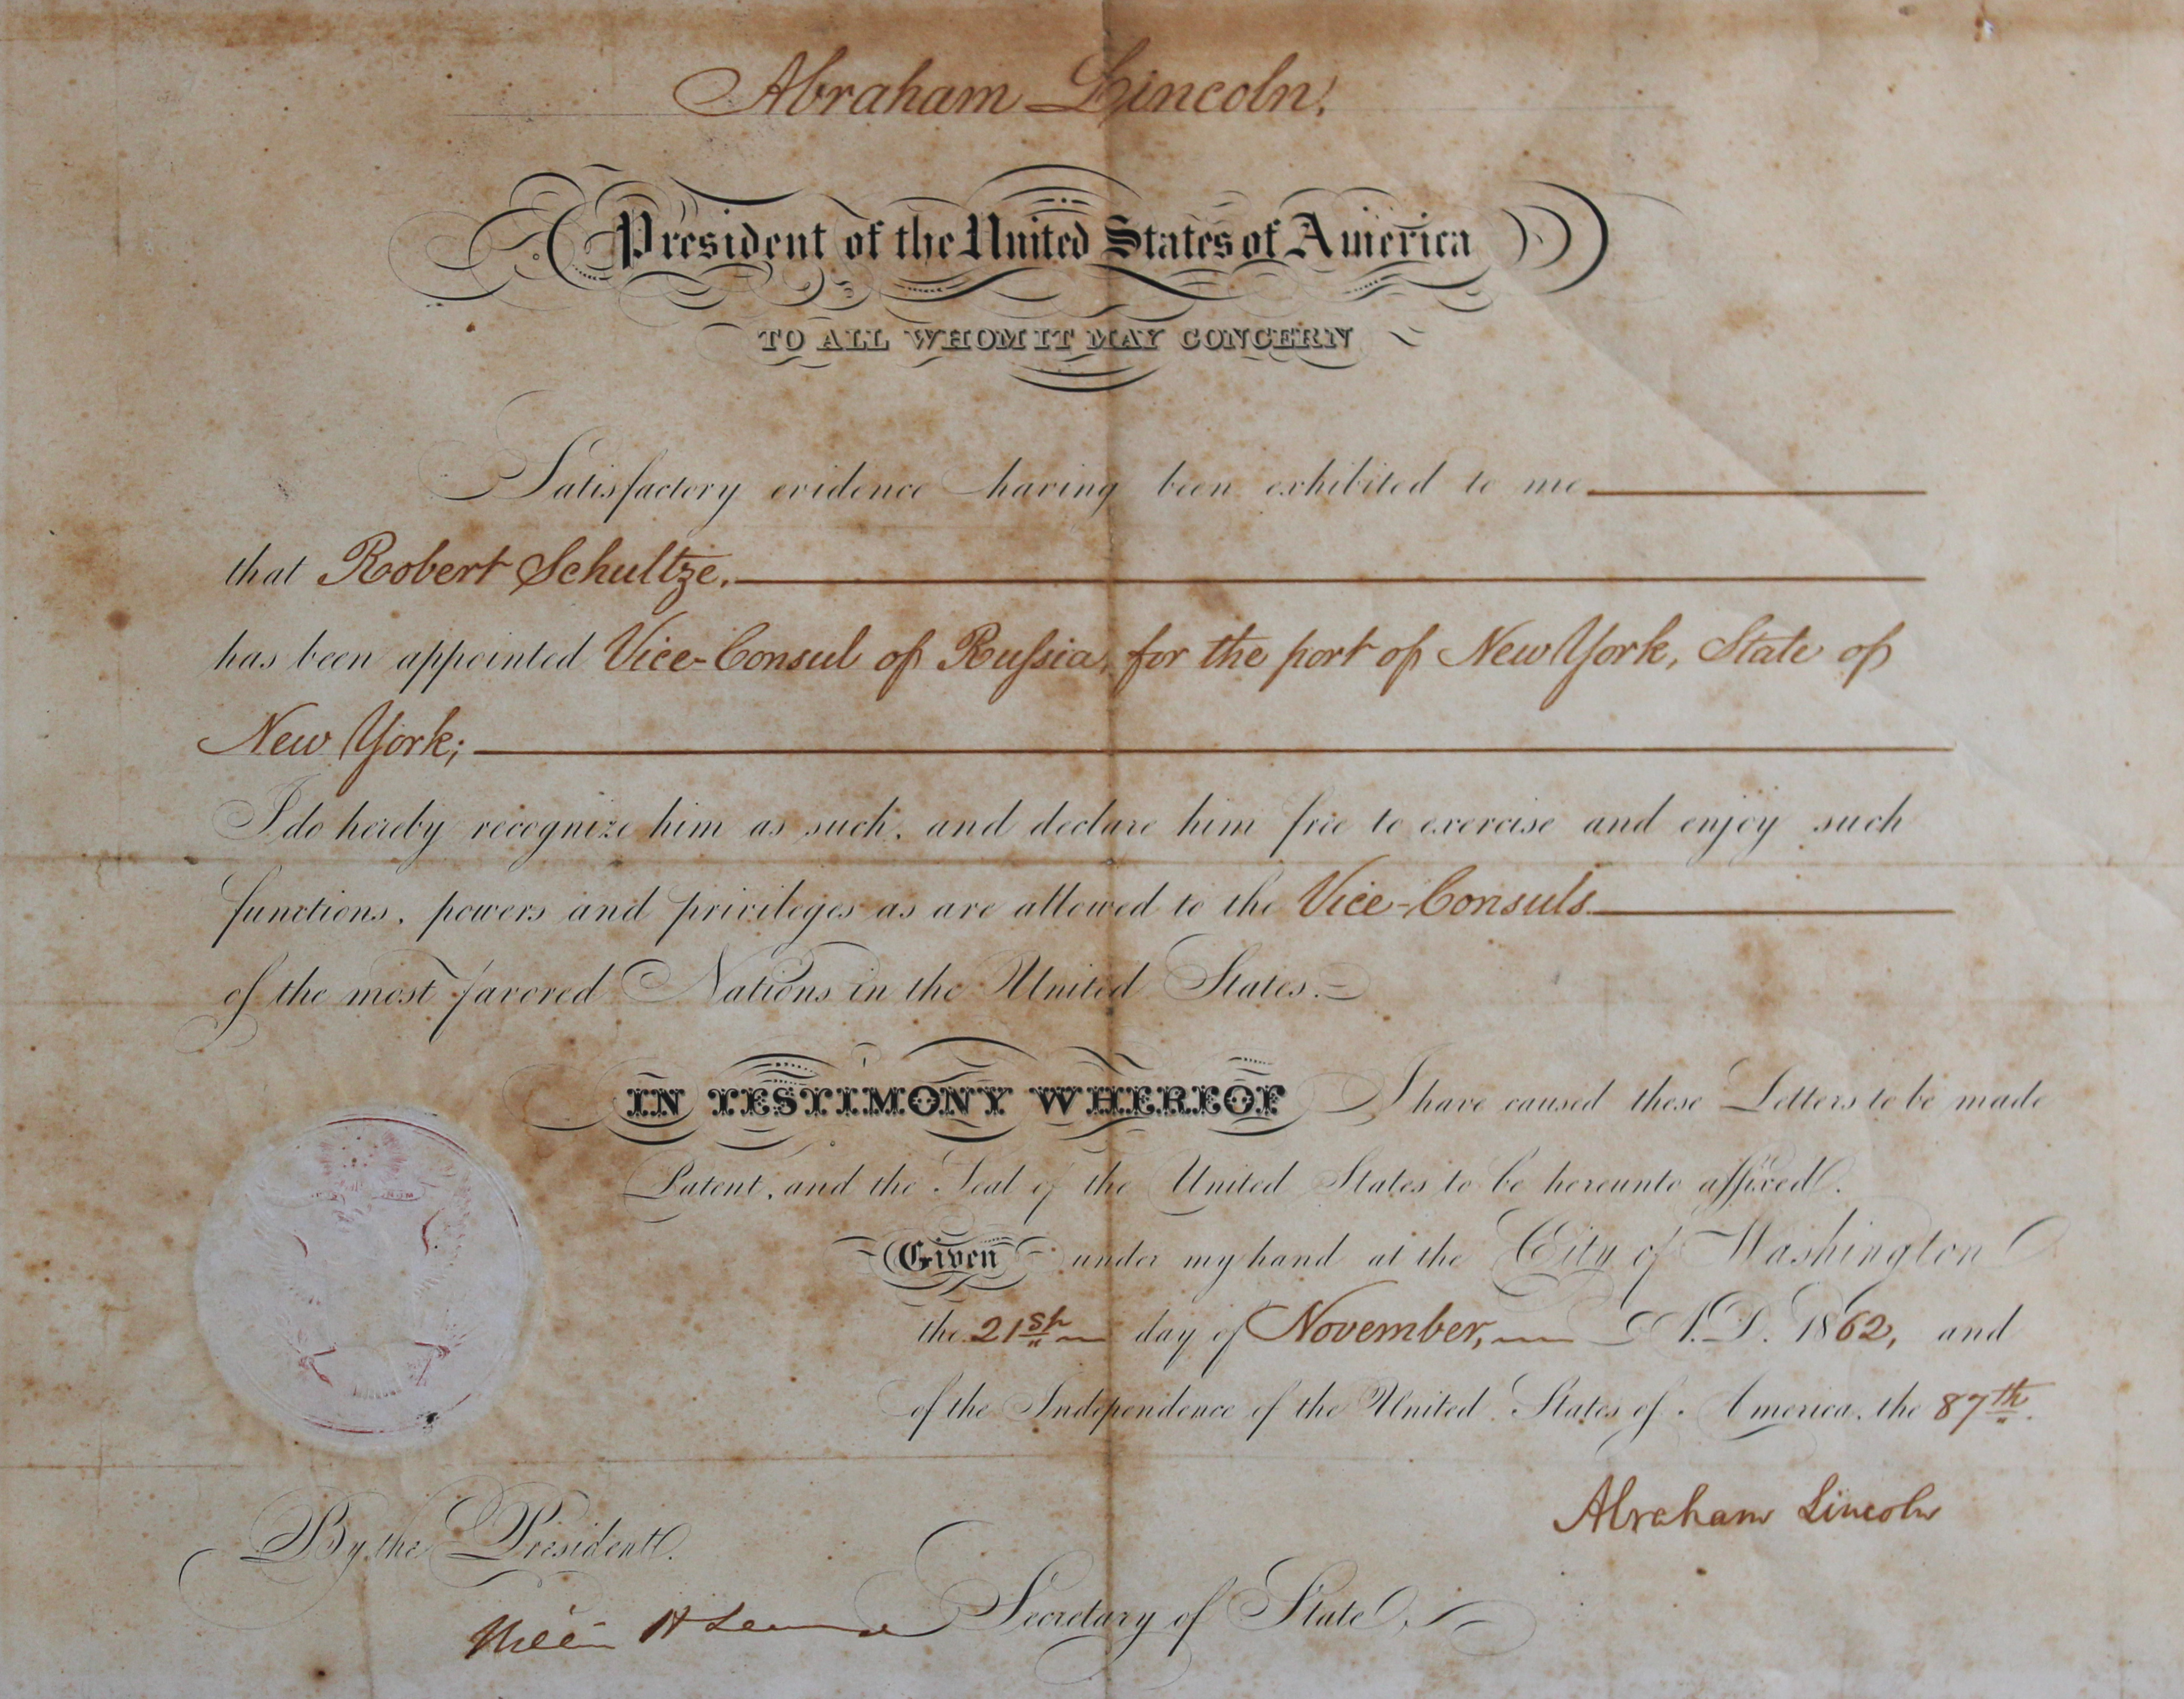 Abraham Lincoln,
President of the United States of America
TO ALL WHOM IT MAY CONCERN
Satisfactory evidence having been exhibited to me
that Robert Schultze,
has been appointed Vice-Consul of Russia, for the port of New York, State of
New York;
I do hereby recognize him as such, and declare him free to exercise and enjoy such
functions, powers and privileges as are allowed to the Vice-Consuls
of the most favored Nations in the United States.
IN TESTIMONY WHEREOF I have caused these Letters to be made
Patent, and the Seal of the United States to be hereunto affixed.
Given under my hand at the City of Washington
the 21st day of November, A.D. 1862, and
of the Independence of the United States of America, the 87th.
Abraham Lincoln
By the President.
William H Seward Secretary of State.